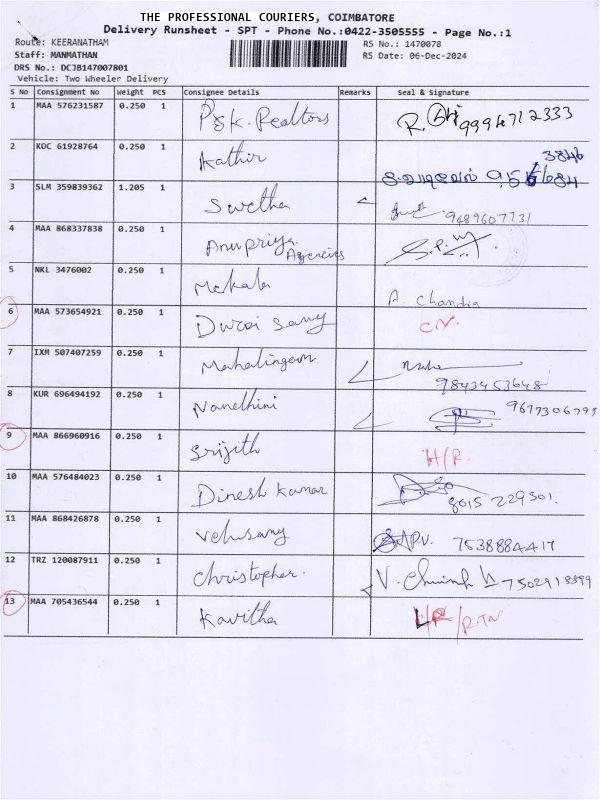 THE PROFESSIONAL COURIERS, COIMBATORE
Delivery Runsheet - SPT - Phone No.:0422-3505555 - Page No.:1
Route: KEERANATHAM RS No.: 1470078
Staff: MANMATHAN RS Date: 06-Dec-2024
DRS No.: DCJB147007801
Vehicle: Two Wheeler Delivery
S No Consignment No Weight PCS Consignee Details Remarks Seal & Signature
1 MAA 576231587 0.250 1 P&K. Realtors R. 9994712333
2 KOC 61928764 0.250 1 Kathir 3846
3 SLM 359839362 1.205 1 Swetha 9489607731
4 MAA 868337838 0.250 1 Anupriya Agencies
5 NKL 3476002 0.250 1 Mekala A Chandra
6 MAA 573654921 0.250 1 Durai Samy CN.
7 IXM 507407259 0.250 1 Mahalingam 9843453648
8 KUR 696494192 0.250 1 Nandhini
9 MAA 866960916 0.250 1 Srijith H/R.
10 MAA 576484023 0.250 1 Dinesh Kumar 8015 229501.
11 MAA 868426878 0.250 1 Velusamy 7538884417
12 TRZ 120087911 0.250 1 Christopher. V. 7502918399
13 MAA 705436544 0.250 1 Kavitha /RTN